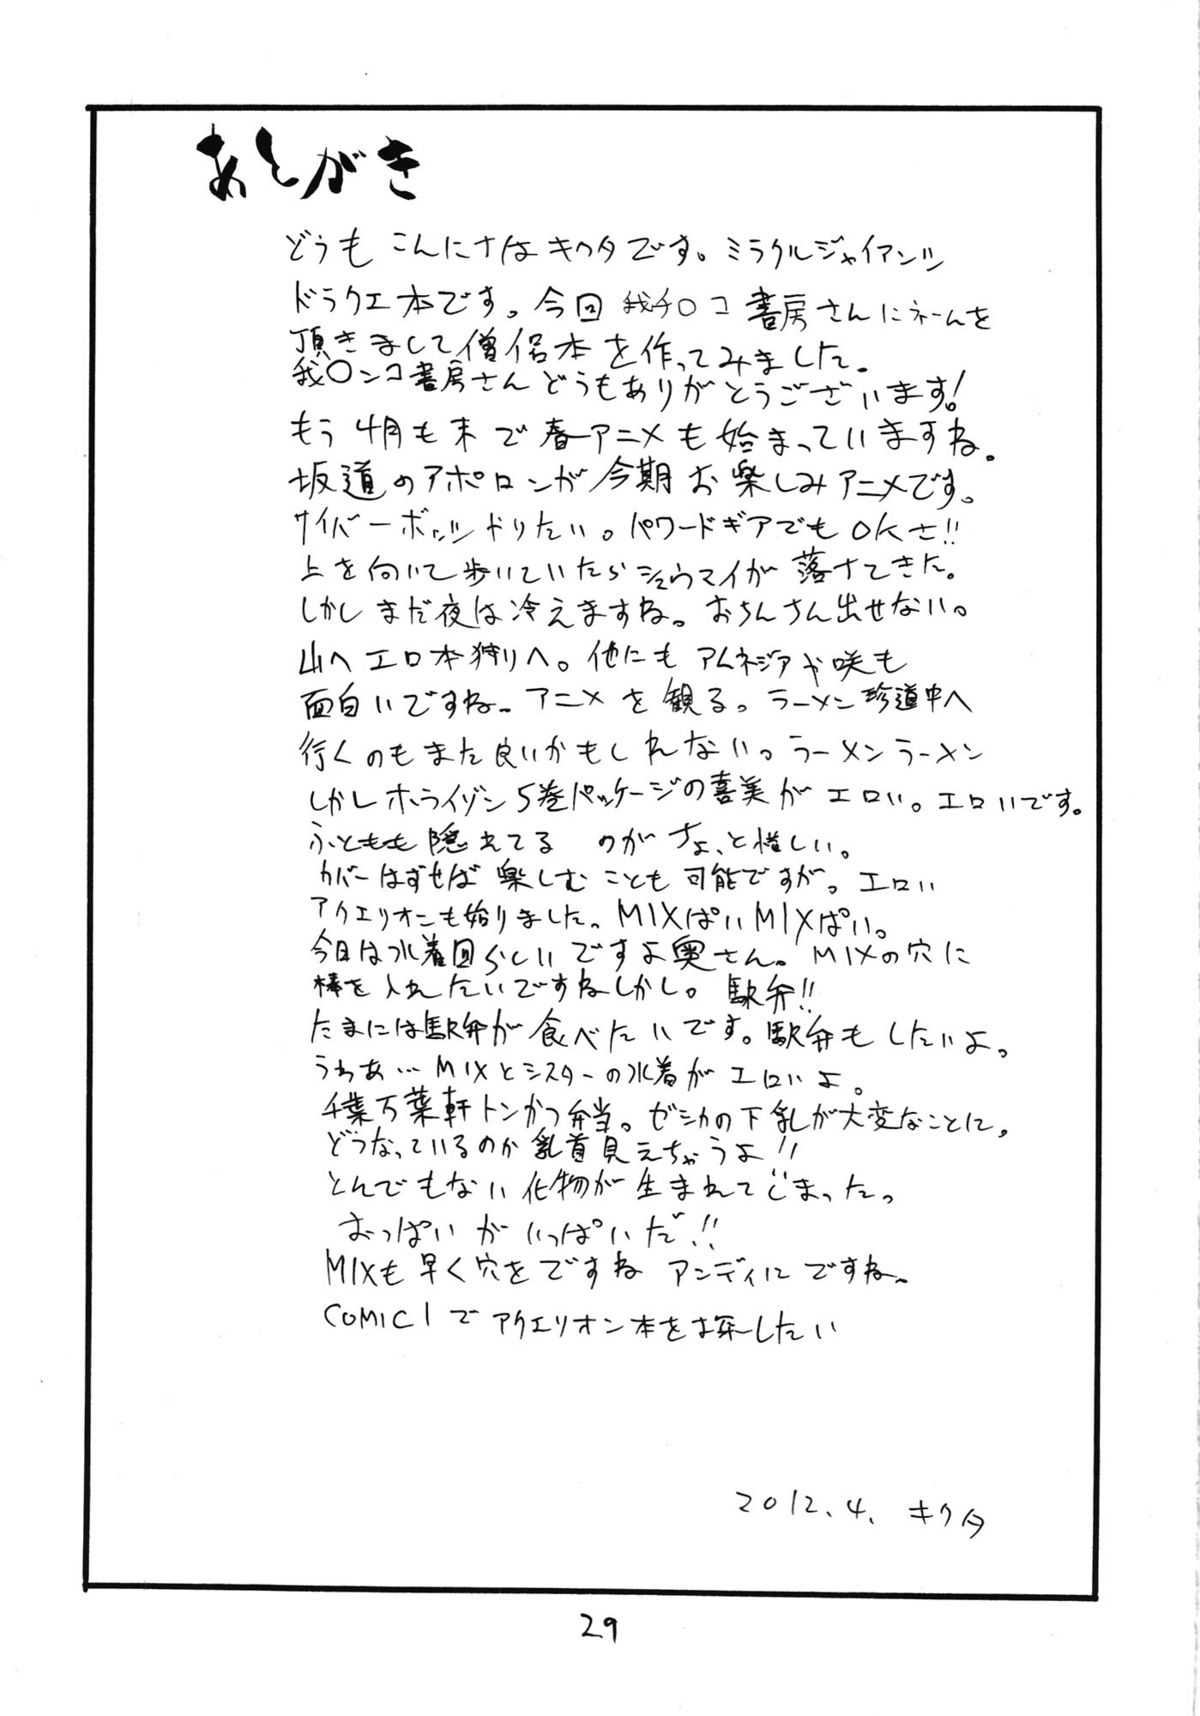 あとがき
どうもこんにちはキクタです。ミラクルジャイアンツ
ドラクエ本です。今回 我チ〇コ書房さんにネームを
頂きまして僧侶本を作ってみました。
我〇ンコ書房さんどうもありがとうございます!
もう4月も末で春アニメも始まっていますね。
坂道のアポロンが今期お楽しみアニメです。
サイバーボッツやりたい。パワードギアでもOKさ!!
上を向いて歩いていたらシュウマイが落ちてきた。
しかしまだ夜は冷えますね。おちんちん出せない。
山へエロ本狩りへ。他にもアムネジアや咲も
面白いですね。アニメを観る。ラーメン珍道中へ
行くのもまた良いかもしれない。ラーメンラーメン
しかしホライゾン5巻パッケージの喜美がエロい。エロいです。
ふともも隠れてる のがちょっと惜しい。
カバーはずせば楽しむことも可能ですが。エロい
アクエリオンも始りました。MIXぱいMIXぱい。
今日は水着回らしいですよ奥さん。MIXの穴に
棒を入れたいですねしかし。駅弁!!
たまには駅弁が食べたいです。駅弁もしたいよ。
うわあ…MIXとシスターの水着がエロいよ。
千葉万葉軒トンかつ弁当。ゼシカの下乳が大変なことに。
どうなっているのか乳首見えちゃうよ!!
とんでもない化物が生まれてしまったっ
おっぱいがいっぱいだ!!
MIXも早く穴をですね アンディにですね。
COMIC1でアクエリオン本を探したい
2012.4. キクタ
29